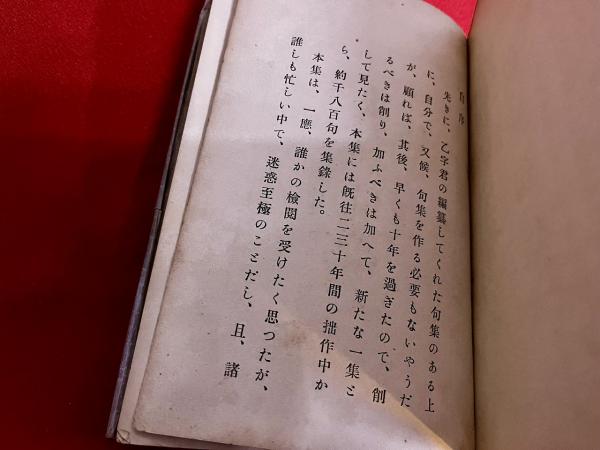 自序
先きに、乙字君の編纂してくれた句集のある上
に、自分で、又候、句集を作る必要もないやうだ
が、顧れば、其後、早くも十年を過ぎたので、削
るべきは削り、加ふべきは加へて、新たな一集と
して見たく、本集には既往二三十年間の拙作中か
ら、約千八百句を集錄した。
本集は、一應、誰かの檢閲を受けたく思つたが、
誰しも忙しい中で、迷惑至極のことだし、且、諸